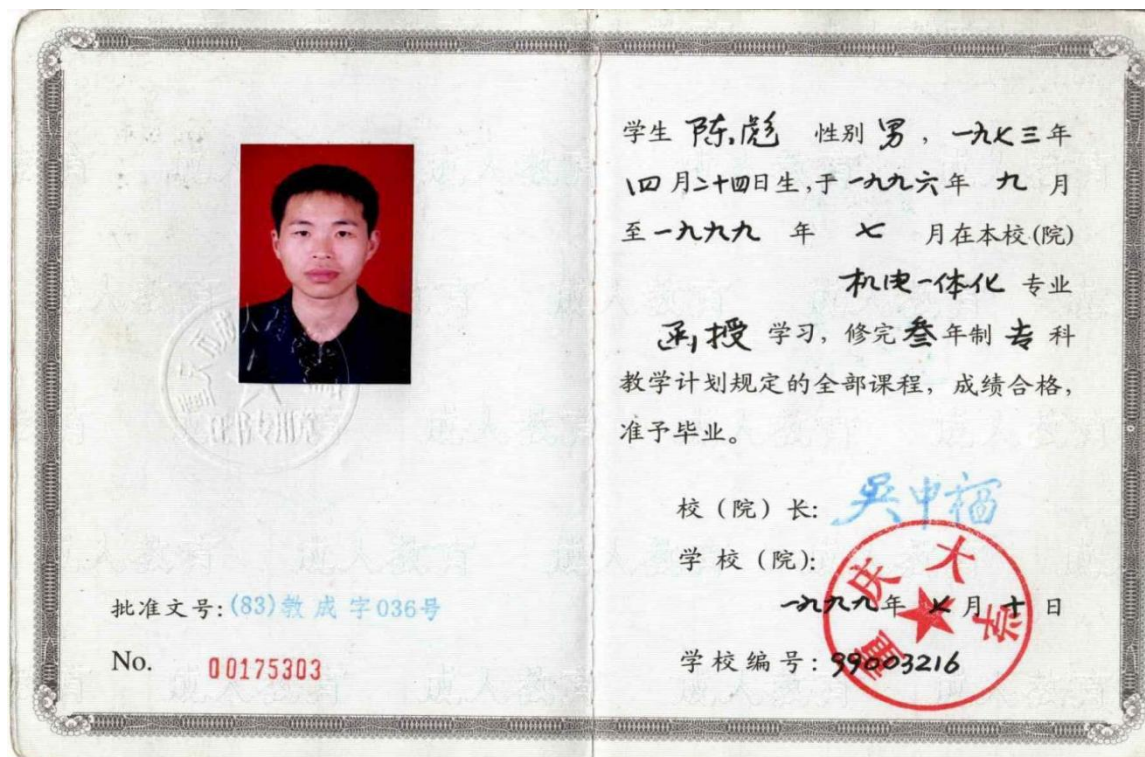 批准文号:(83)教成字036号
No. 00175303
学生 陈彪 性别 男 , 一九七三年
四月二十四日生,于一九九六年 九 月
至一九九九 年 七 月在本校(院)
机电一体化 专业
函授 学习, 修完叁年制 专 科
教学计划规定的全部课程, 成绩合格,
准予毕业。
校(院)长: 吴中福
学校(院):
一九九九年 七 月 十 日
学校编号: 99003216
重庆大学
证书专用章
成人教育